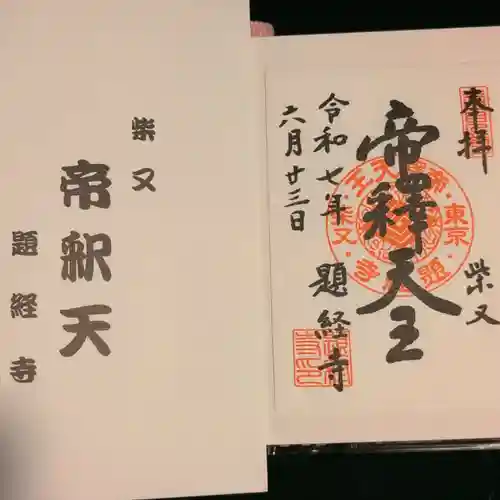 柴又
帝釈天
題経寺
奉拝
柴又
帝釋天王
題経寺
令和七年
六月廿三日
東京
柴又